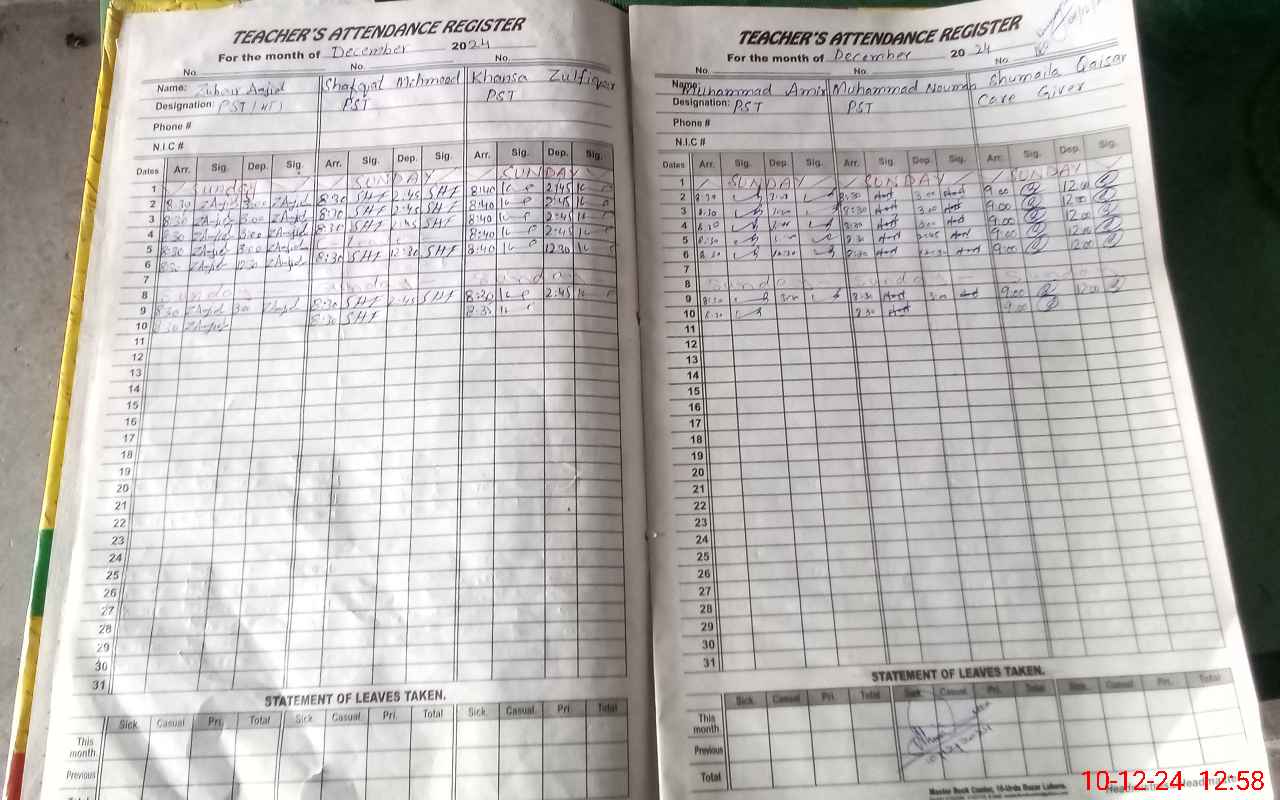 TEACHER'S ATTENDANCE REGISTER
For the month of December 2024
No. No. No.
Name: Zuhair Amjid Shafqat Mehmood Khansa Zulfiqar
Designation: PST (HT) PST PST
Phone #
N.I.C #
Dates Arr. Sig. Dep. Sig. Arr. Sig. Dep. Sig. Arr. Sig. Dep. Sig.
1 Sunday SUNDAY SUNDAY
2 8:30 ZAmjid 3:00 ZAmjid 8:30 SHF 2:45 SHF 8:40 2:45
3 8:30 ZAmjid 3:00 ZAmjid 8:30 SHF 2:45 SHF 8:40 2:45
4 8:30 ZAmjid 3:00 ZAmjid 8:30 SHF 2:45 SHF 8:40 2:45
5 8:30 ZAmjid 3:00 ZAmjid 8:40 2:45
6 8:30 ZAmjid 12:30 ZAmjid 8:30 SHF 12:30 SHF 8:40 12:30
7
8 Sunday Sunday Sunday
9 8:30 ZAmjid 3:00 ZAmjid 8:30 SHF 2:45 SHF 8:30 2:45
10 8:30 ZAmjid 8:30 SHF 8:35
11
12
13
14
15
16
17
18
19
20
21
22
23
24
25
26
27
28
29
30
31
STATEMENT OF LEAVES TAKEN.
Sick Casual Pri. Total Sick Casual. Pri. Total Sick. Casual. Pri. Total
This month
Previous
Total
TEACHER'S ATTENDANCE REGISTER
For the month of December 2024
No. No. No.
Name: Muhammad Amir Muhammad Nouman Shumaila Qaisar
Designation: PST PST Care Giver
Phone #
N.I.C #
Dates Arr. Sig. Dep. Sig. Arr. Sig. Dep Sig. Arr. Sig. Dep Sig.
1 SUNDAY SUNDAY SUNDAY
2 8:30 3:00 8:30 3:00 9:00 12:00
3 8:30 3:00 8:30 3:00 9:00 12:00
4 8:30 8:30 3:00 9:00 12:00
5 8:30 8:30 2:45 9:00 12:00
6 8:30 12:30 8:30 12:30 9:00 12:00
7
8 Sunday Sunday Sunday
9 8:30 3:00 8:30 3:00 9:00 12:00
10 8:30 8:30 9:00
11
12
13
14
15
16
17
18
19
20
21
22
23
24
25
26
27
28
29
30
31
STATEMENT OF LEAVES TAKEN.
Sick Casual Pri. Total Sick Casual Pri. Total Sick. Casual Pri. Total
This month
Previous
Total
Master Book Center, 16-Urdu Bazar Lahore.
10-12-24 12:58